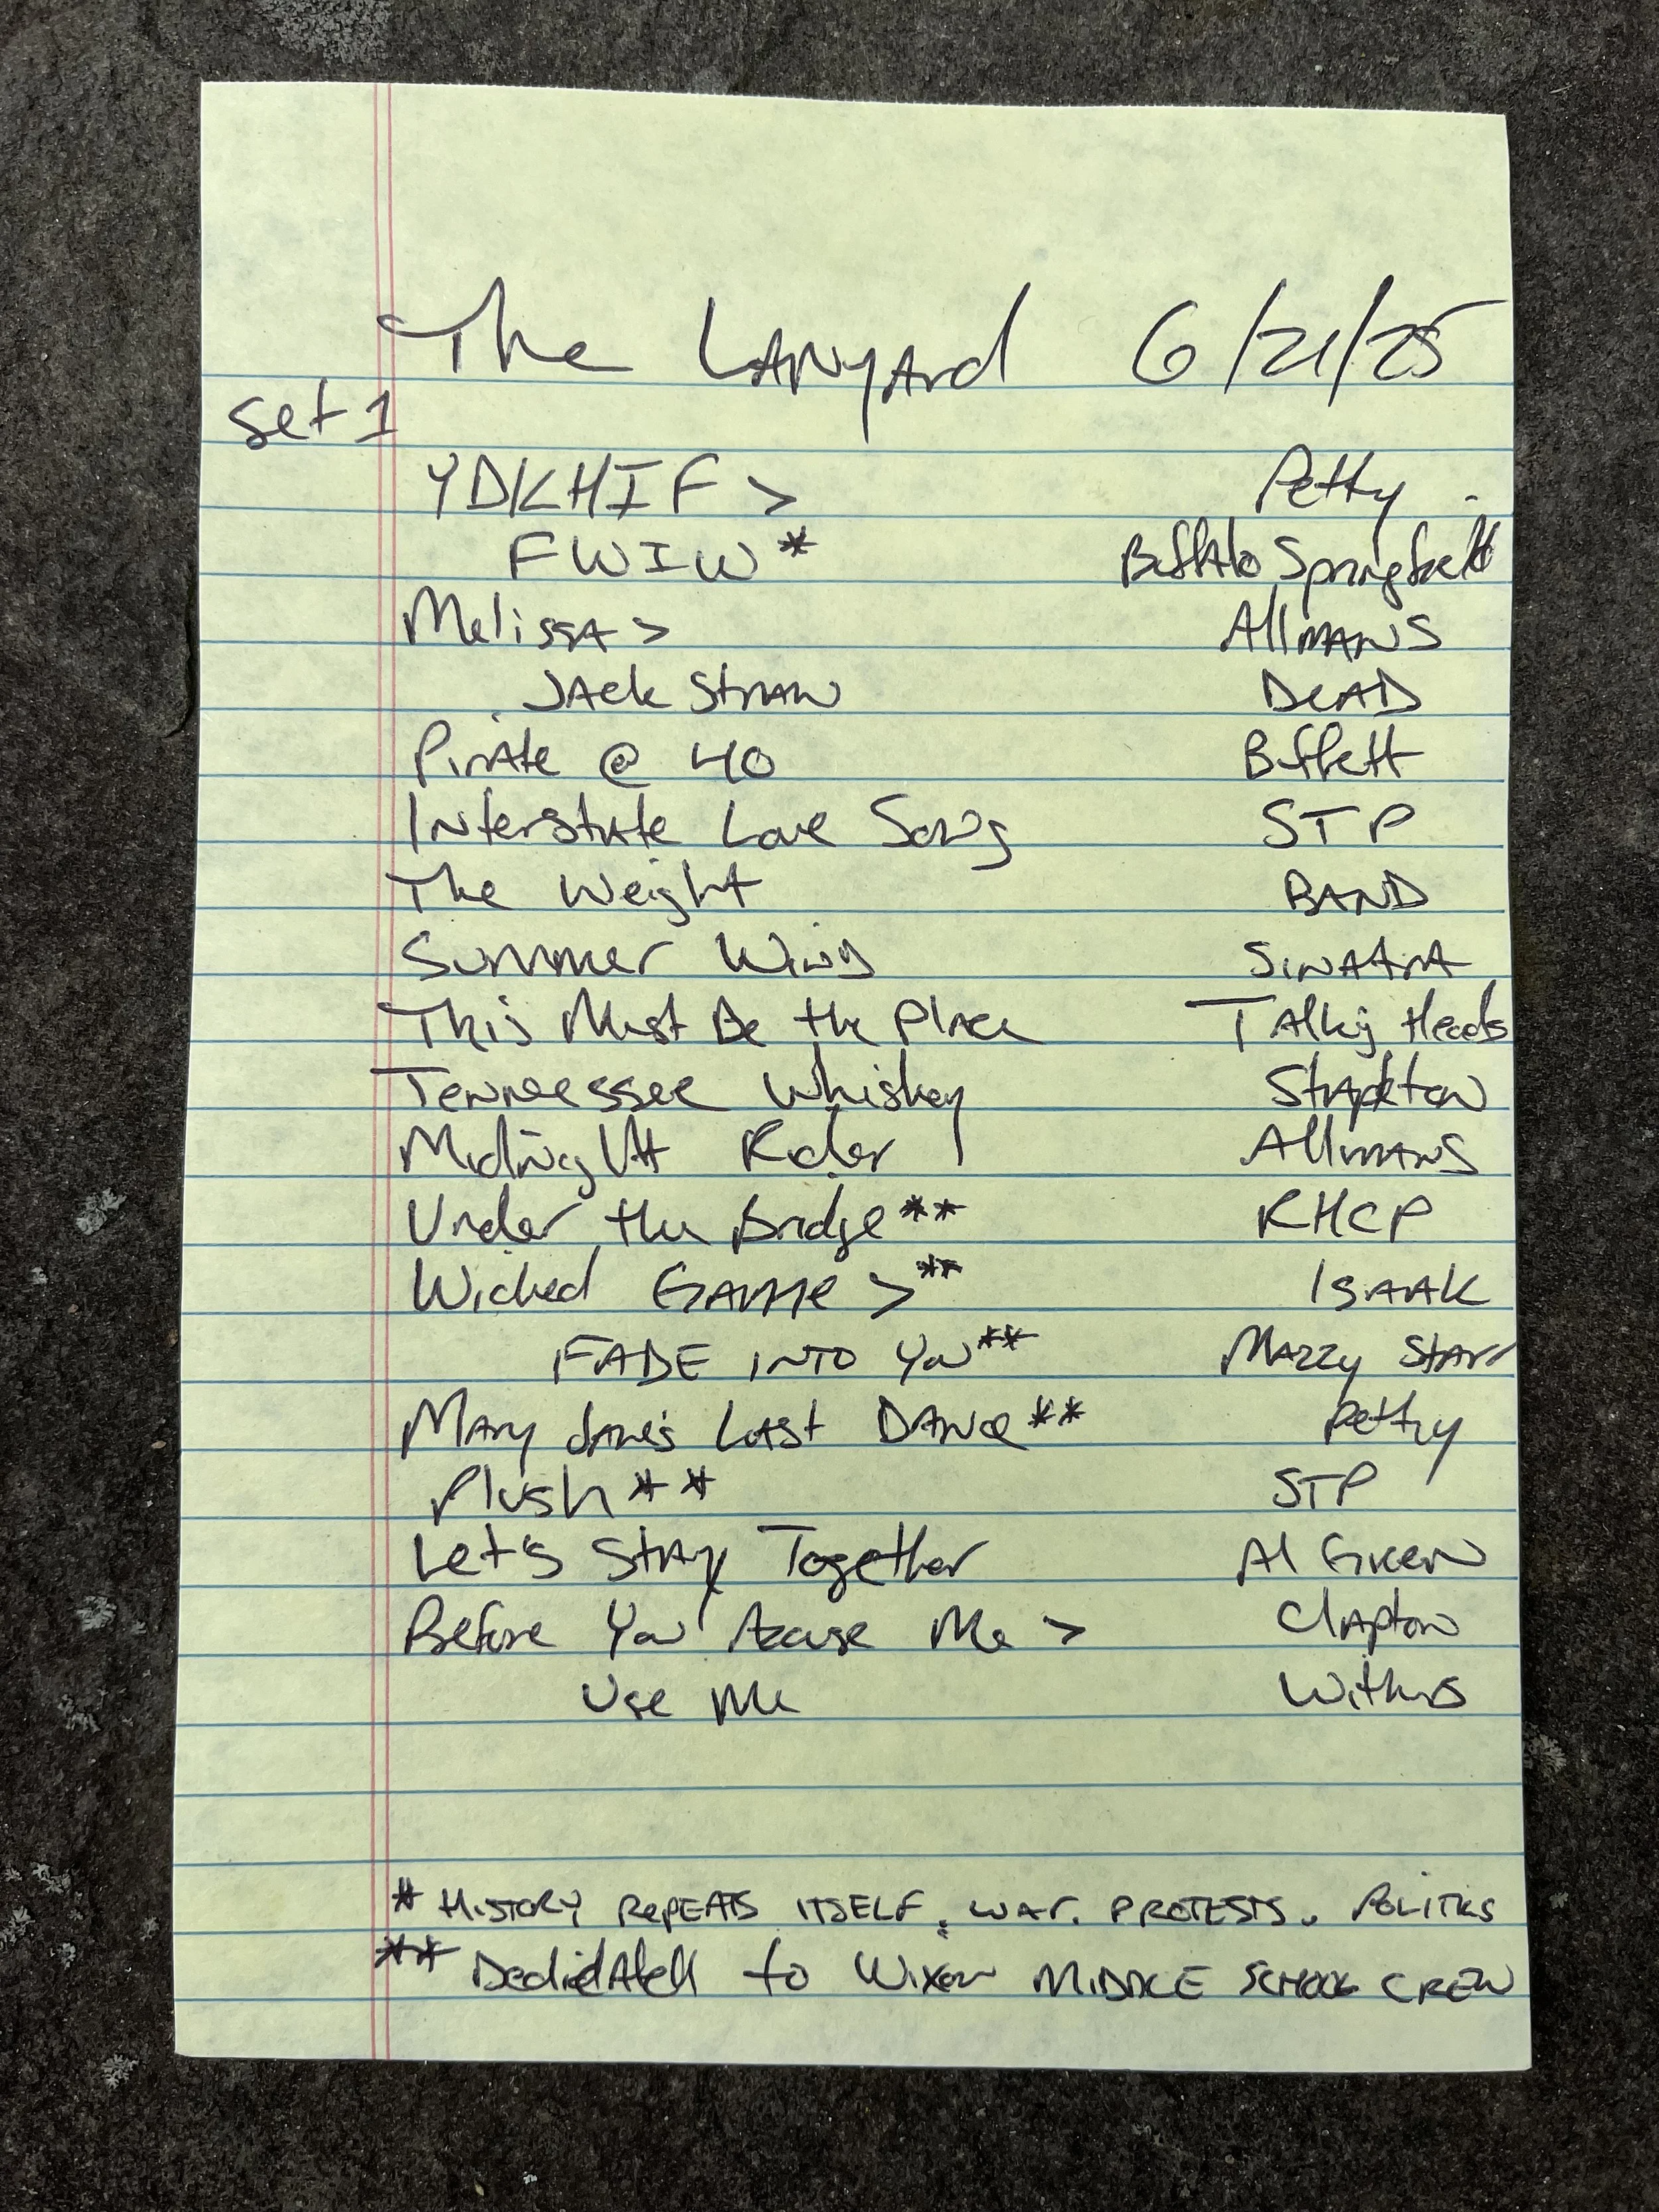 The Lanyard 6/21/25
Set 1
YDKHIF > Petty
FWIW* Buffalo Springfield
Melissa > Allmans
Jack Straw Dead
Pirate @ 40 Buffett
Interstate Love Song STP
The Weight BAND
Summer Wind Sinatra
This Must Be the Place Talking Heads
Tennessee Whiskey Stapleton
Midnight Rider Allmans
Under the Bridge** RHCP
Wicked Game >** Isaak
FADE INTO You** Mazzy Starr
Mary Jane's Last Dance** Petty
Plush** STP
Let's Stay Together Al Green
Before You Accuse Me > Clapton
Use Me Withers
* HISTORY REPEATS ITSELF. WAR. PROTESTS. POLITICS
** Dedicated to Wixon MIDDLE SCHOOL CREW